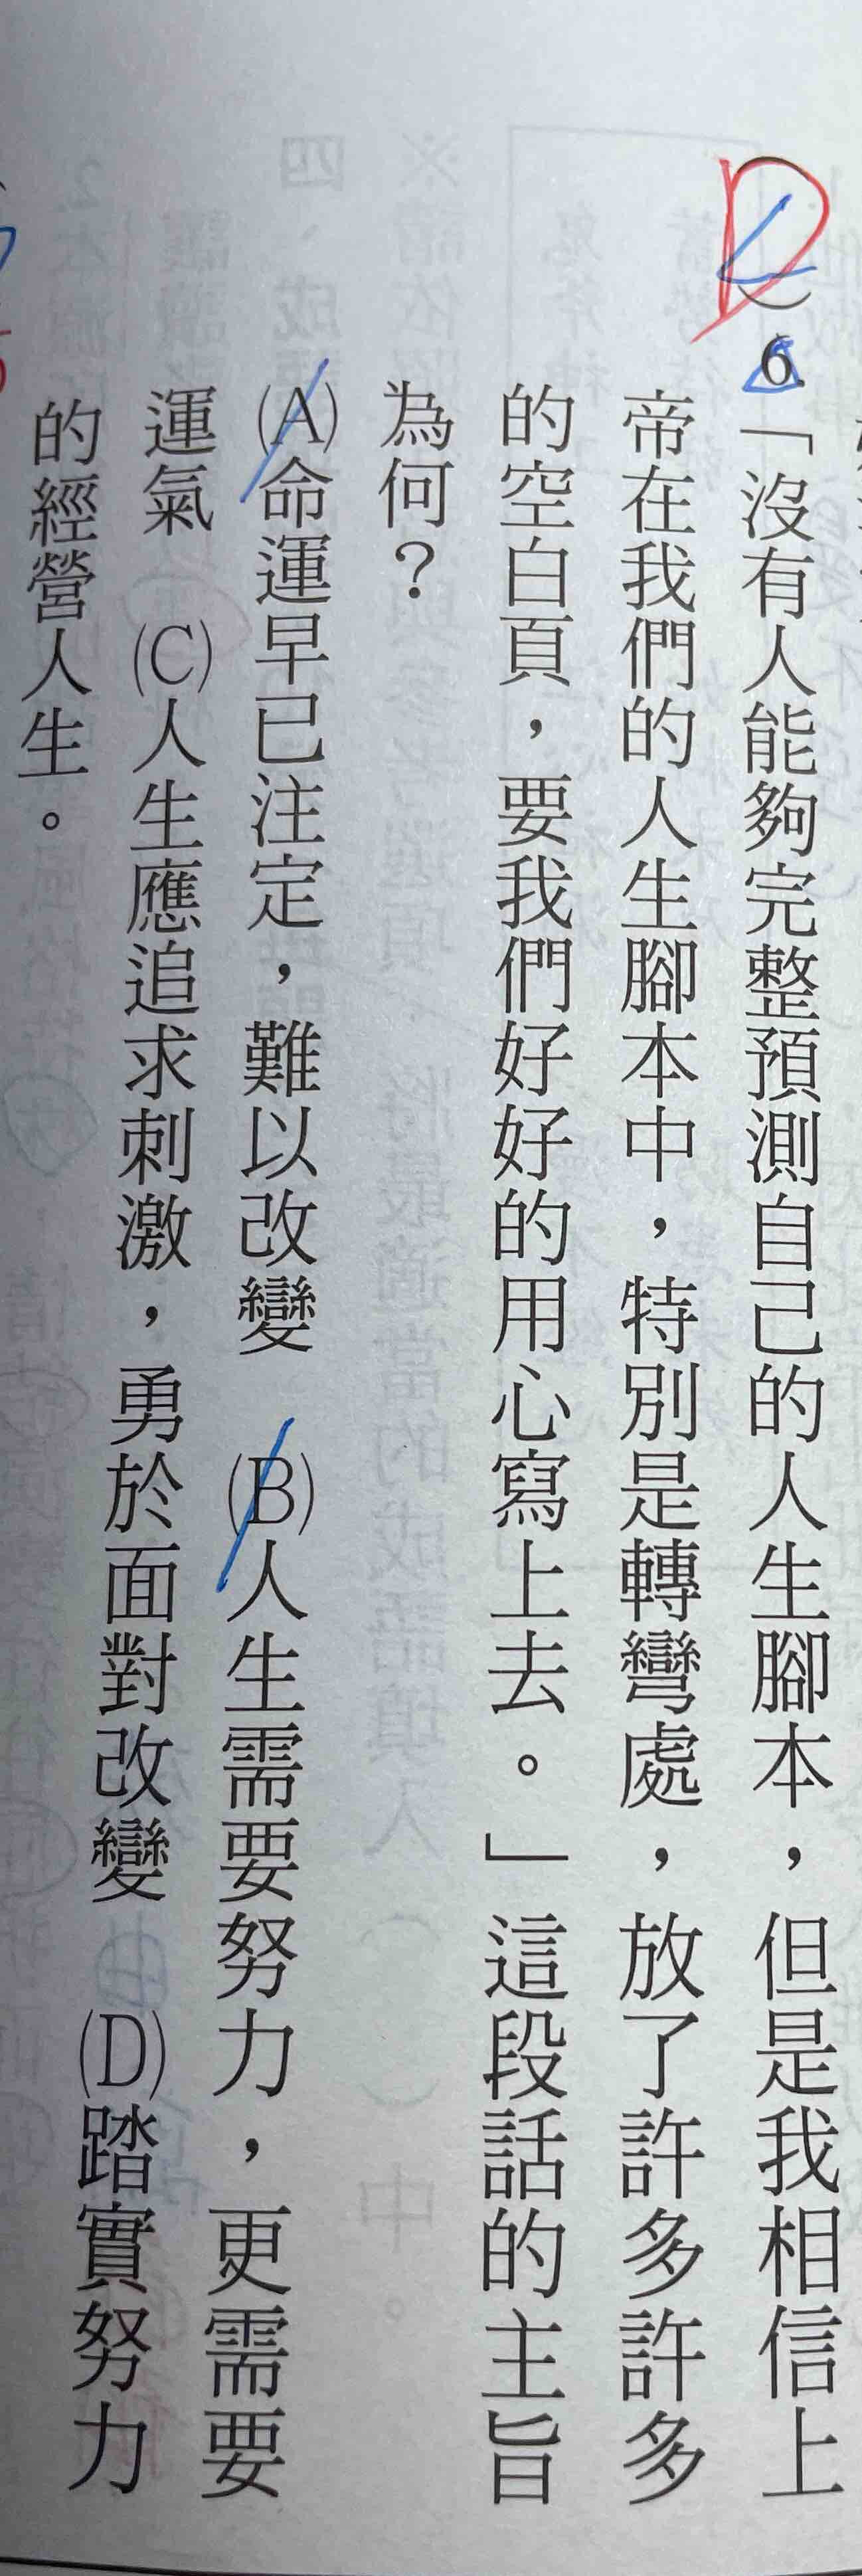 D
( )6.「沒有人能夠完整預測自己的人生腳本,但是我相信上
帝在我們的人生腳本中,特別是轉彎處,放了許多許多
的空白頁,要我們好好的用心寫上去。」這段話的主旨
為何?
(A)命運早已注定,難以改變 (B)人生需要努力,更需要
運氣 (C)人生應追求刺激,勇於面對改變 (D)踏實努力
的經營人生。